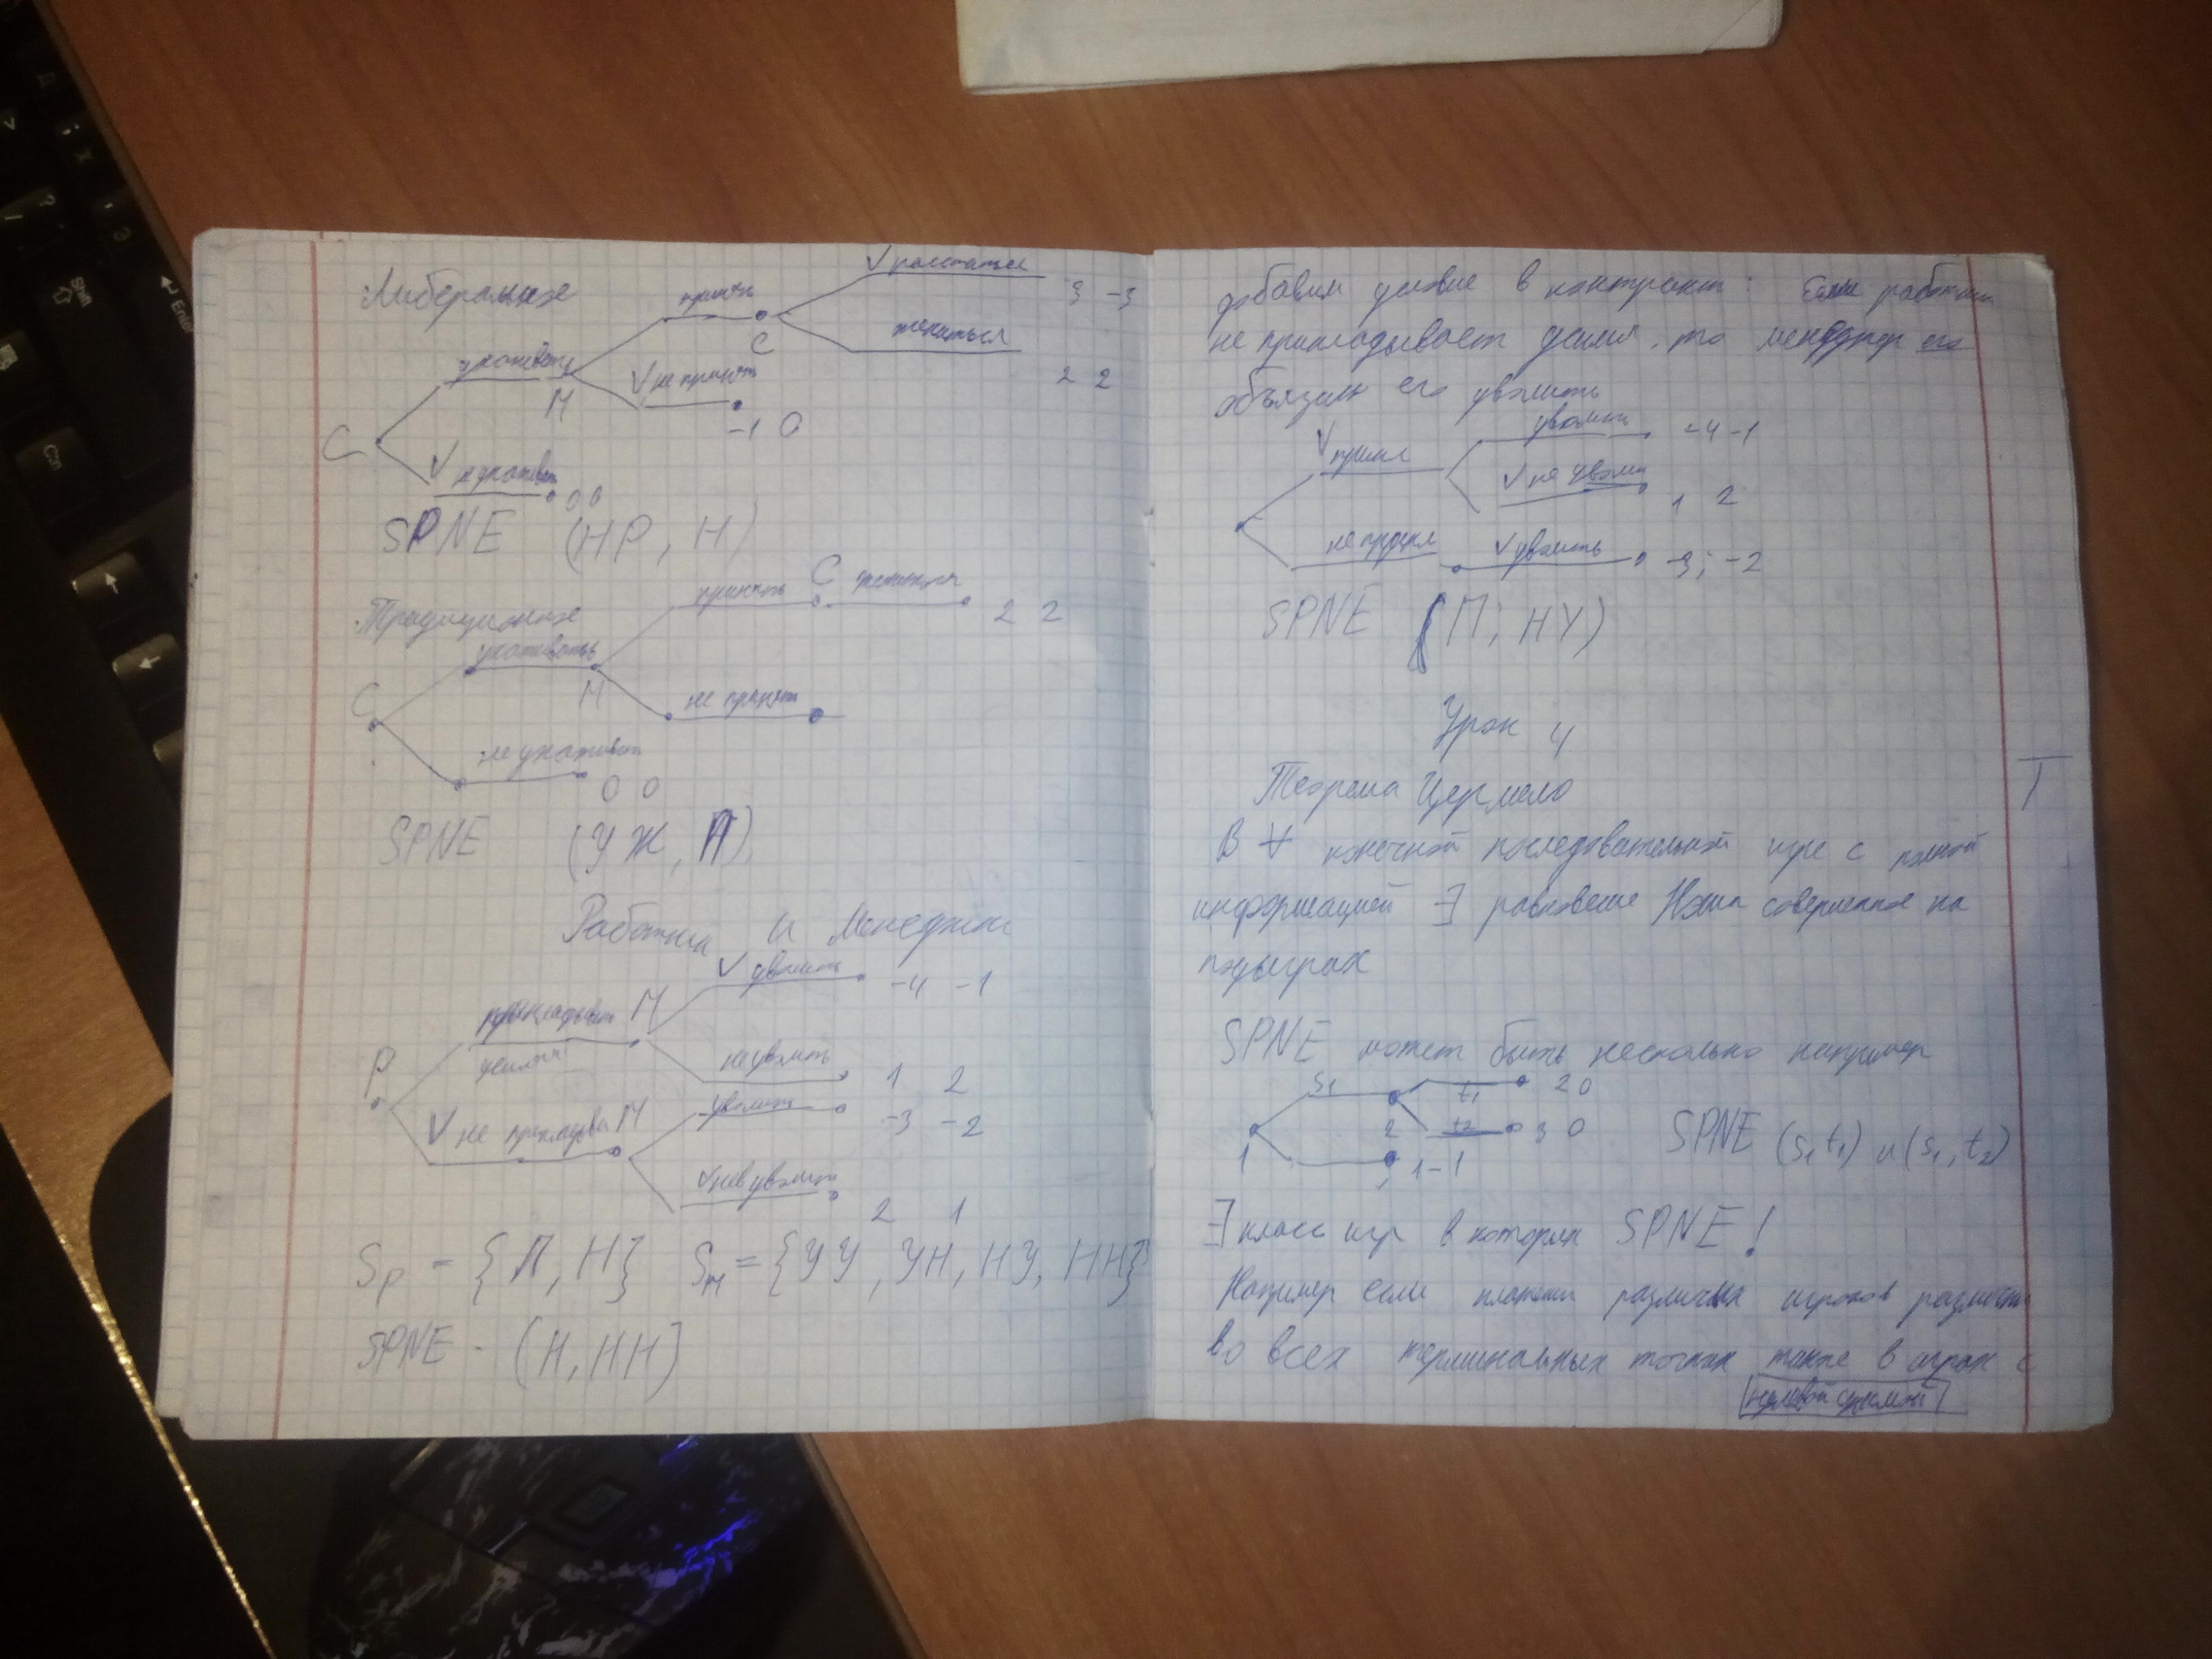 Либеральное
✓ расстаться
3 -3
принять
С
жениться
2 2
ухаживать
М
✓ не принять
-1 0
С
✓ не ухаживать
0 0
SPNE (НР, Н)
Традиционное
принять С жениться
2 2
ухаживать
М
не принять
С
не ухаживать
0 0
SPNE (УЖ, П)
Работник и Менеджер
✓ уволить
-4 -1
прикладывать М
усилия
не уволить
1 2
Р
уволить
-3 -2
✓ не приклад М
✓ не уволить
2 1
Sр = {П, Н} Sм = {УУ, УН, НУ, НН}
SPNE - (Н, НН)
добавим условие в контракт: Если работник
не прикладывает усилия, то менеджер его
обязан его уволить
уволить -4 -1
✓ прикл
✓ не увол
1 2
не прикл ✓ уволить -3; -2
SPNE (П; НУ)
Урок 4
Теорема Цермело
В ∀ конечной последовательной игре с полной
информацией ∃ равновесие Нэша совершенное на
подыграх
SPNE может быть несколько например
s1 t1 2 0
2 t2 3 0
SPNE (s1 t1) и (s1, t2)
1 1 -1
∃ класс игр в которых SPNE !
Например если платежи различных игроков различны
во всех терминальных точках также в играх с
нулевой суммой
Т